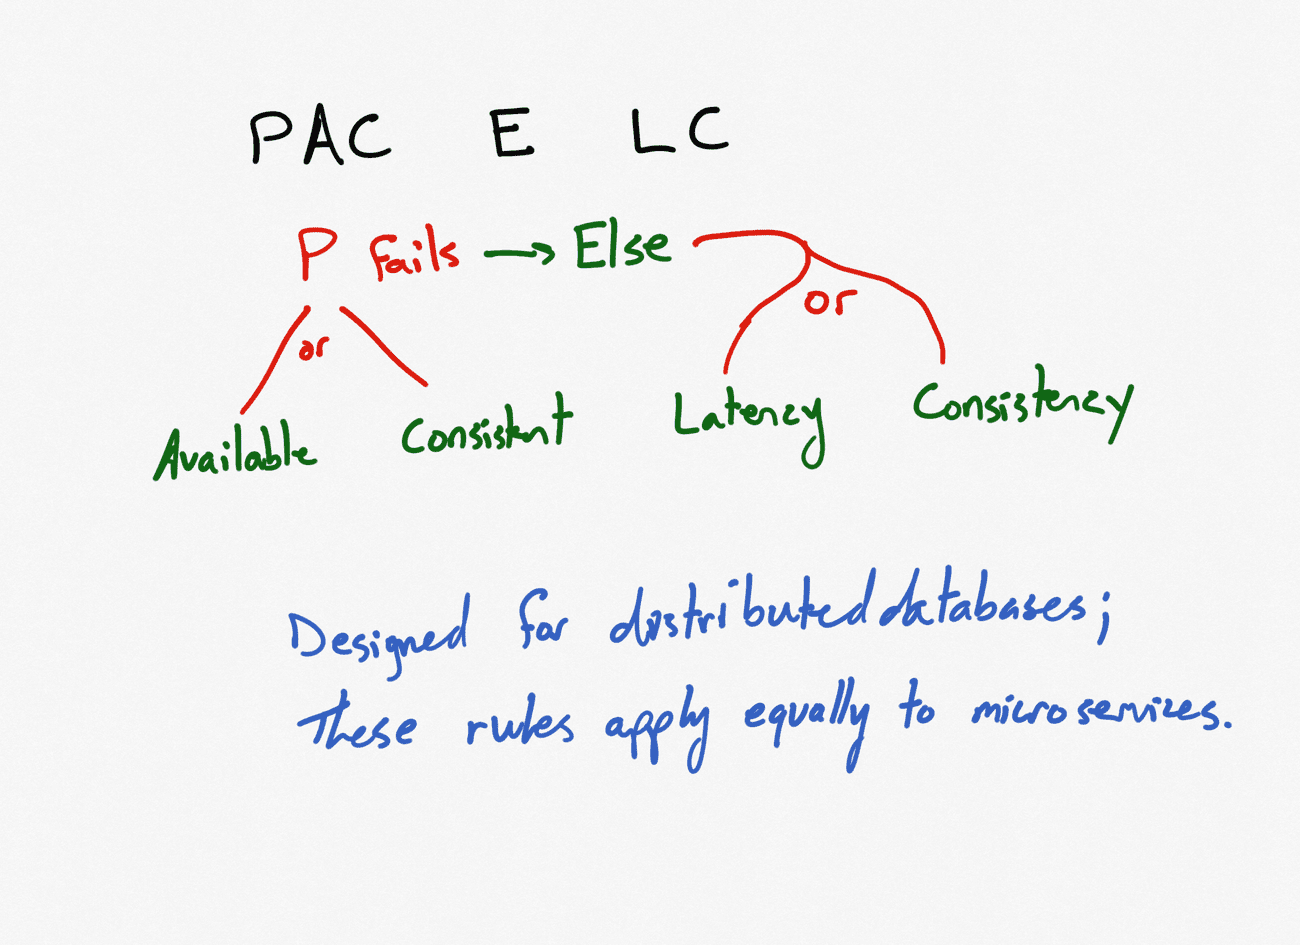 PAC E LC
P fails → Else
or or
Available Consistent Latency Consistency
Designed for distributed databases;
These rules apply equally to microservices.